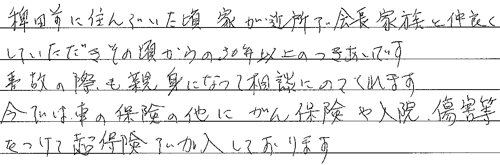 稗田前に住んでいた頃 家が近所で会長家族と仲良く
していただきその頃からの30年以上のつきあいです
事故の際も親身になって相談にのってくれます
今では車の保険の他にがん保険や入院、傷害等
をつけて超保険で加入しております